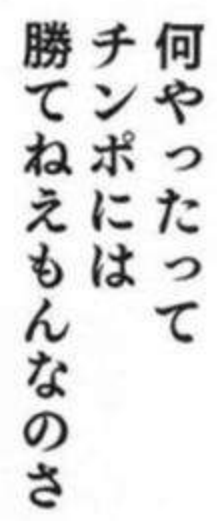 何やったって
チンポには
勝てねえもんなのさ